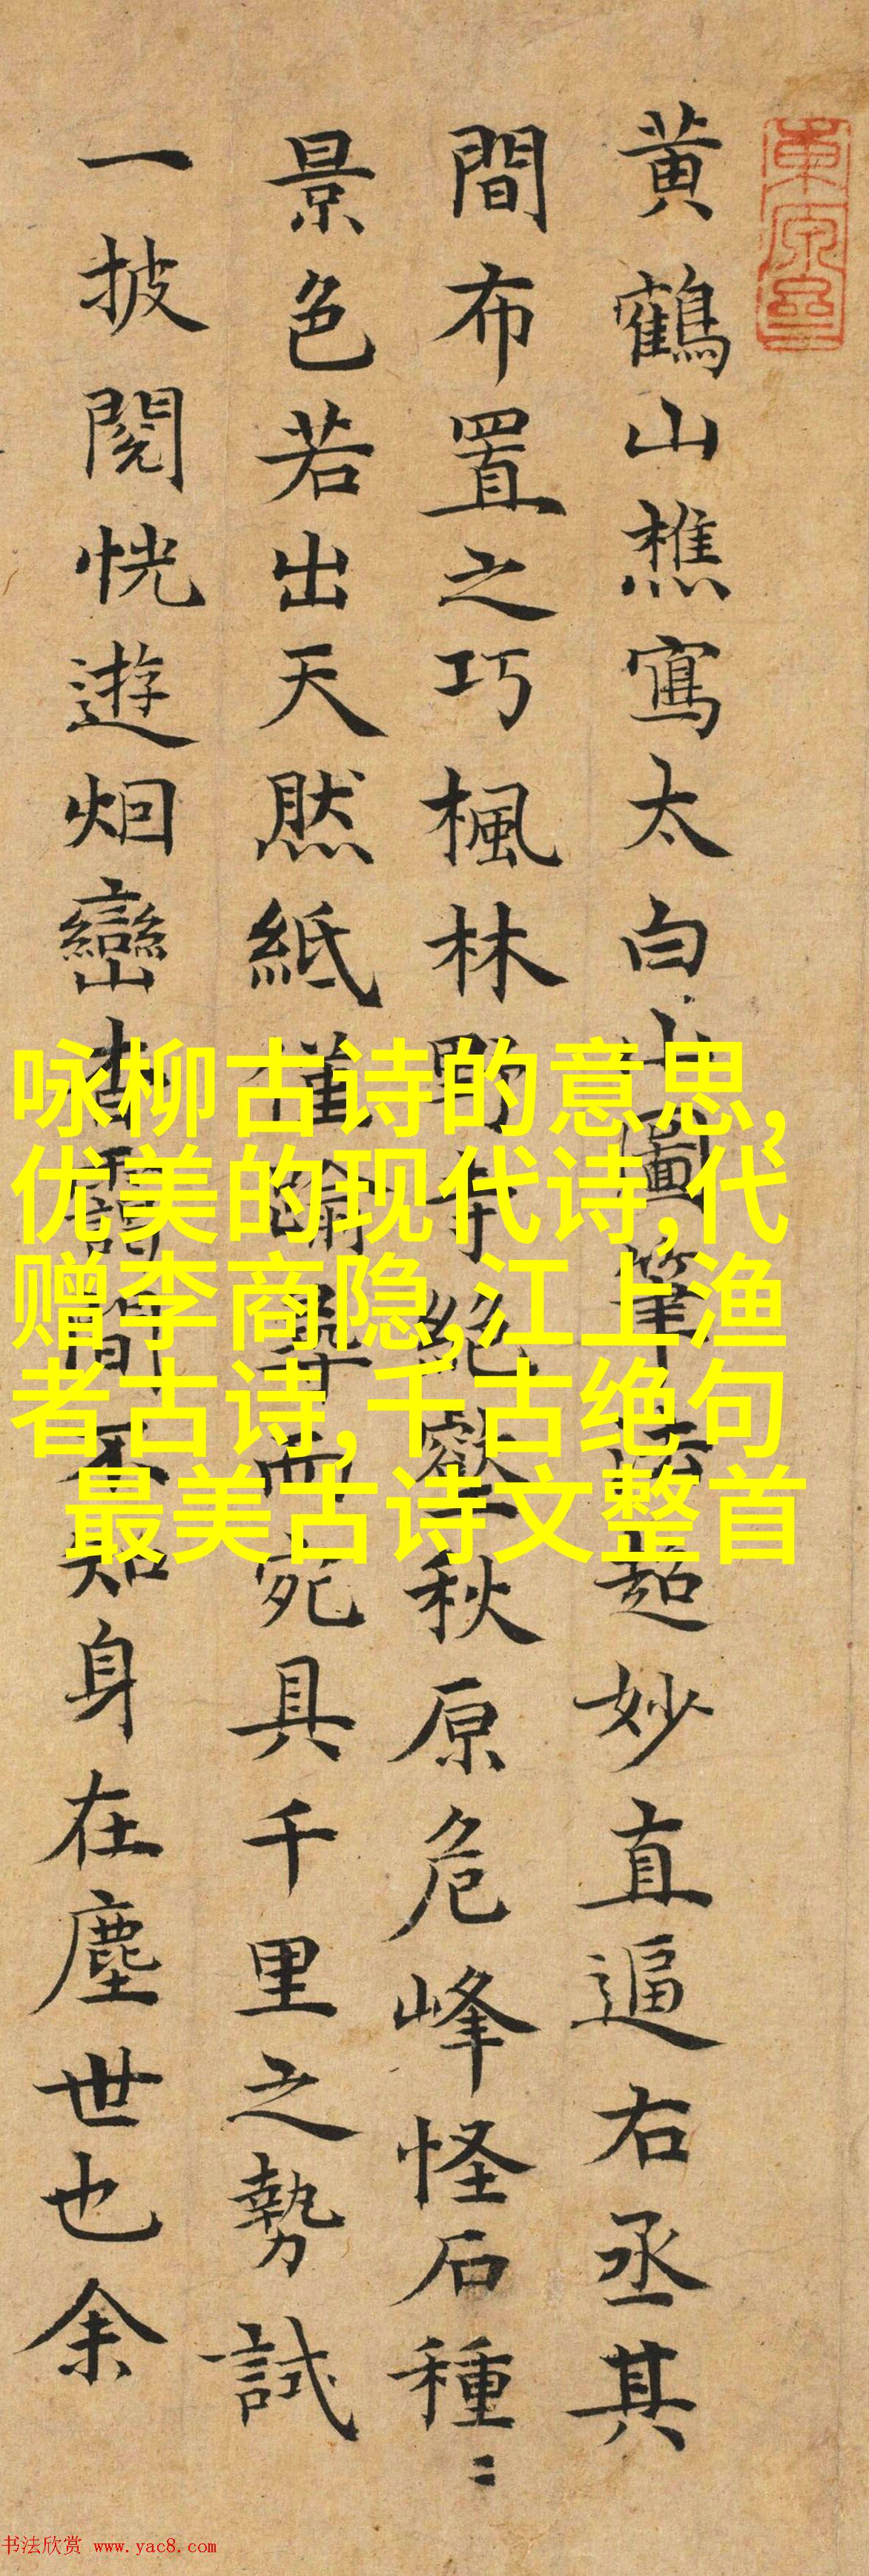 黄鶴山樵寫太白山圖筆法超妙直逼右丞其
間布置之巧楓林野寺絕歡秋原危峰怪石種〻
景色若出天然紙僅踰尋而宛具千里之勢試
一披閱恍遊烟巒杳靄間不知身在塵世也余
咏柳古诗的意思,
优美的现代诗,代
赠李商隐,江上渔
者古诗,千古绝句
最美古诗文整首
书法欣赏 www.yac8.com